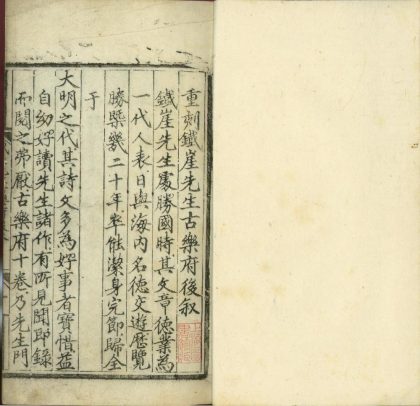 重刻鐵崖先生古樂府後敘
鐵崖先生處勝國時其文章德業為
一代人表日與海內名德交遊歷覽
勝槩幾二十年卒能潔身完節歸全
于
大明之代其詩文多為好事者寶惜益
自幼好讀先生諸作有所見聞即錄
而閱之弗厭古樂府十卷乃先生門